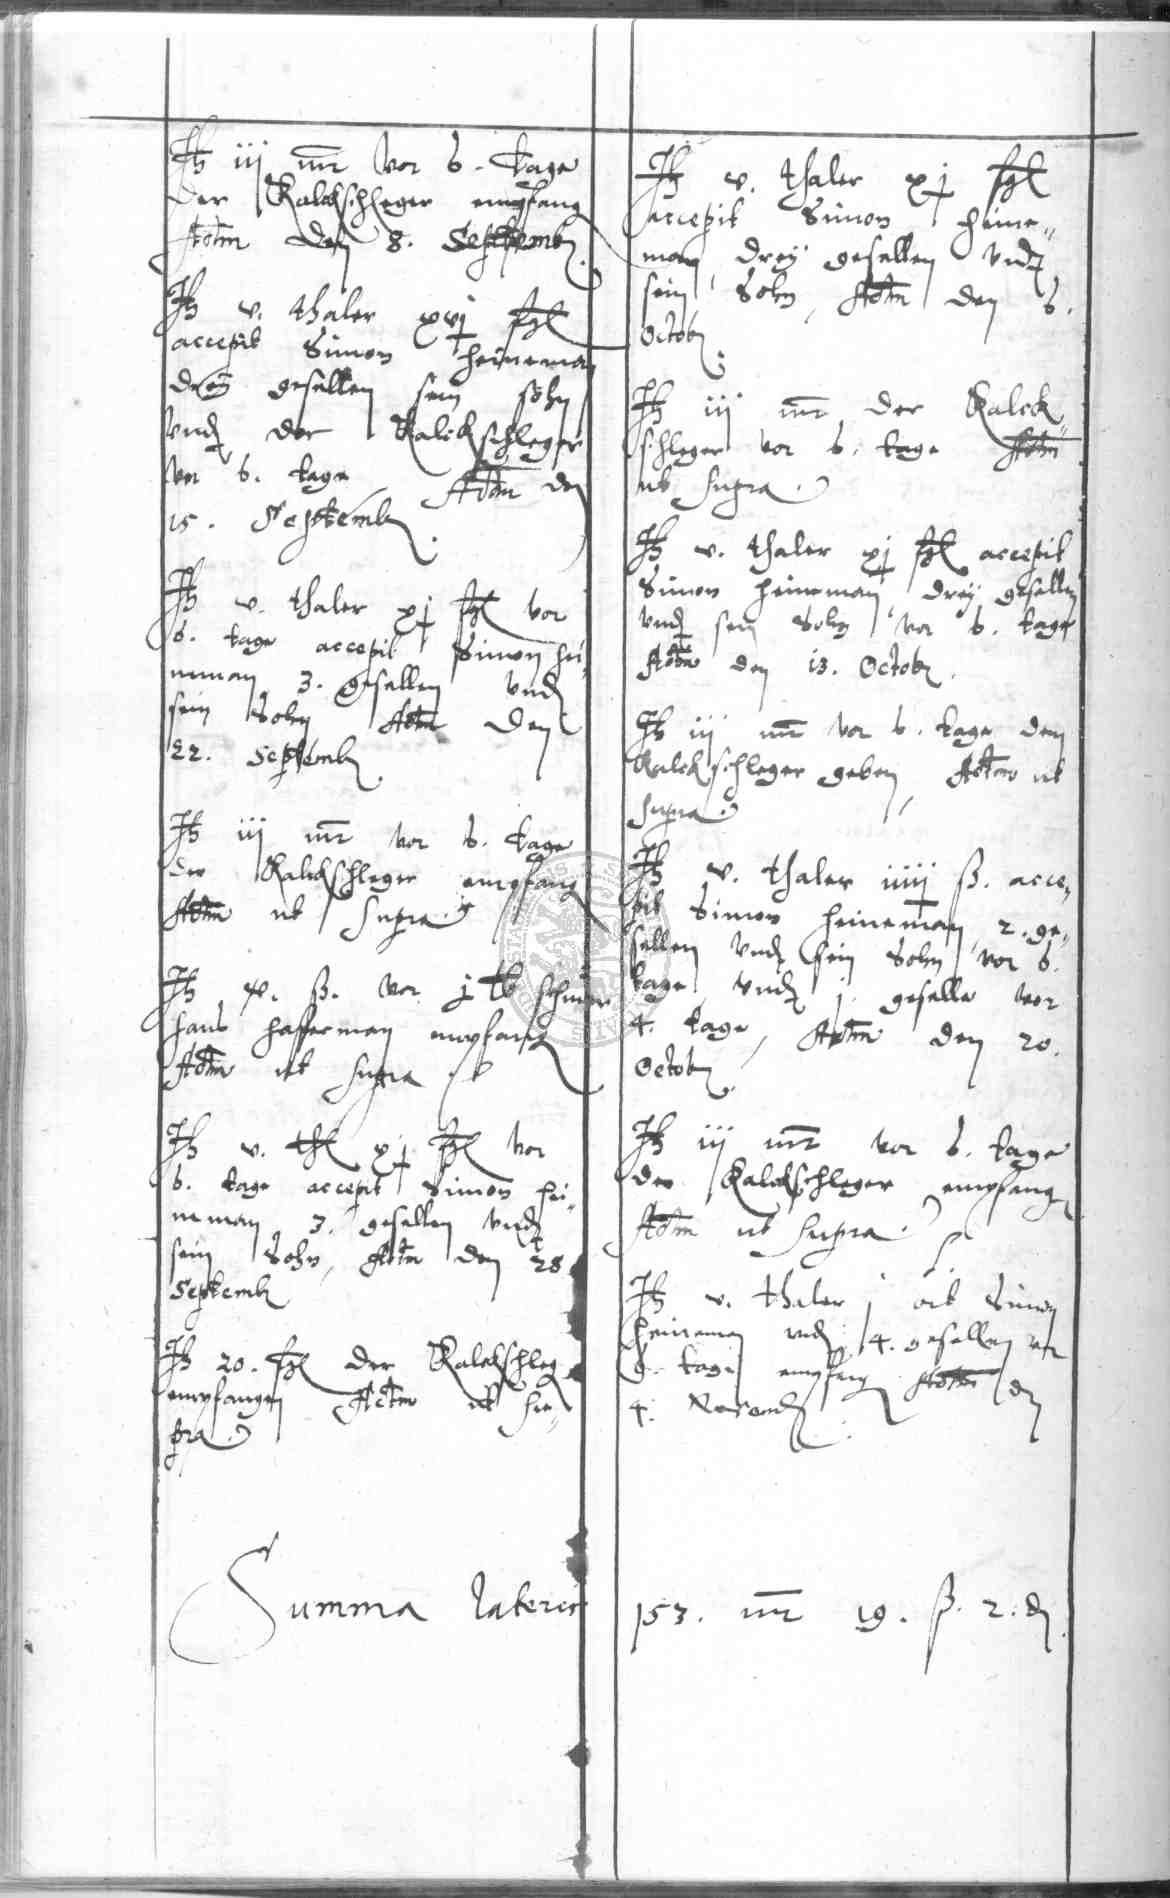 It iij mr vor 6. tage
der Kalckschleger empfang
Actm den 8. Septemb
It v. thaler xvj fgl
accepit Simon heineman
drey gesellen sein sohn
vnd der Kalckschleger
vor 6. tage Actm den
15. Septemb
It v. thaler xj fgl vor
6. tage accepit Simon hei-
neman 3. gesellen vnd
sein Sohn Actm den
22. Septemb
It iij mr vor 6. tage
der Kalckschleger empfang
Actm ut supra
It ß. vor j lb schmer
hans hafferman empfang
Actm ut supra
It v. thl xj fgl vor
6. tage accepit Simon hei-
neman 3. gesellen vnd
sein Sohn, Actm den 28
Septemb
It 20. fgl der Kalckschleg
empfangen Actm ut su-
pra
Summa lateris
It v. thaler xj fgl
accepit Simon heine-
man drey gesellen vnd
sein Sohn, Actm den 6.
Octob
It iij mr der Kalck-
schleger vor 6. tage Actm
ut supra
It v. thaler xj fgl accepit
Simon heineman, drey gesellen
vnd sein Sohn vor 6. tage
Actm den 13. Octob
It iij mr vor 6. tage dem
Kalckschleger geben, Actm ut
supra
It v. thaler iiij ß. acce-
pit Simon heineman, 2. ge-
sellen vnd sein Sohn vor 6.
tage, vnd j geselle vor
4. tage, Actm den 20.
Octob
It iij mr vor 6. tage
der Kalckschleger empfang
Actm ut supra
It v. thaler j ort Simon
heineman vnd 4. gesellen vor
6. tage empfang Actm den
4. Novemb
153. mr 19. ß. 2. d